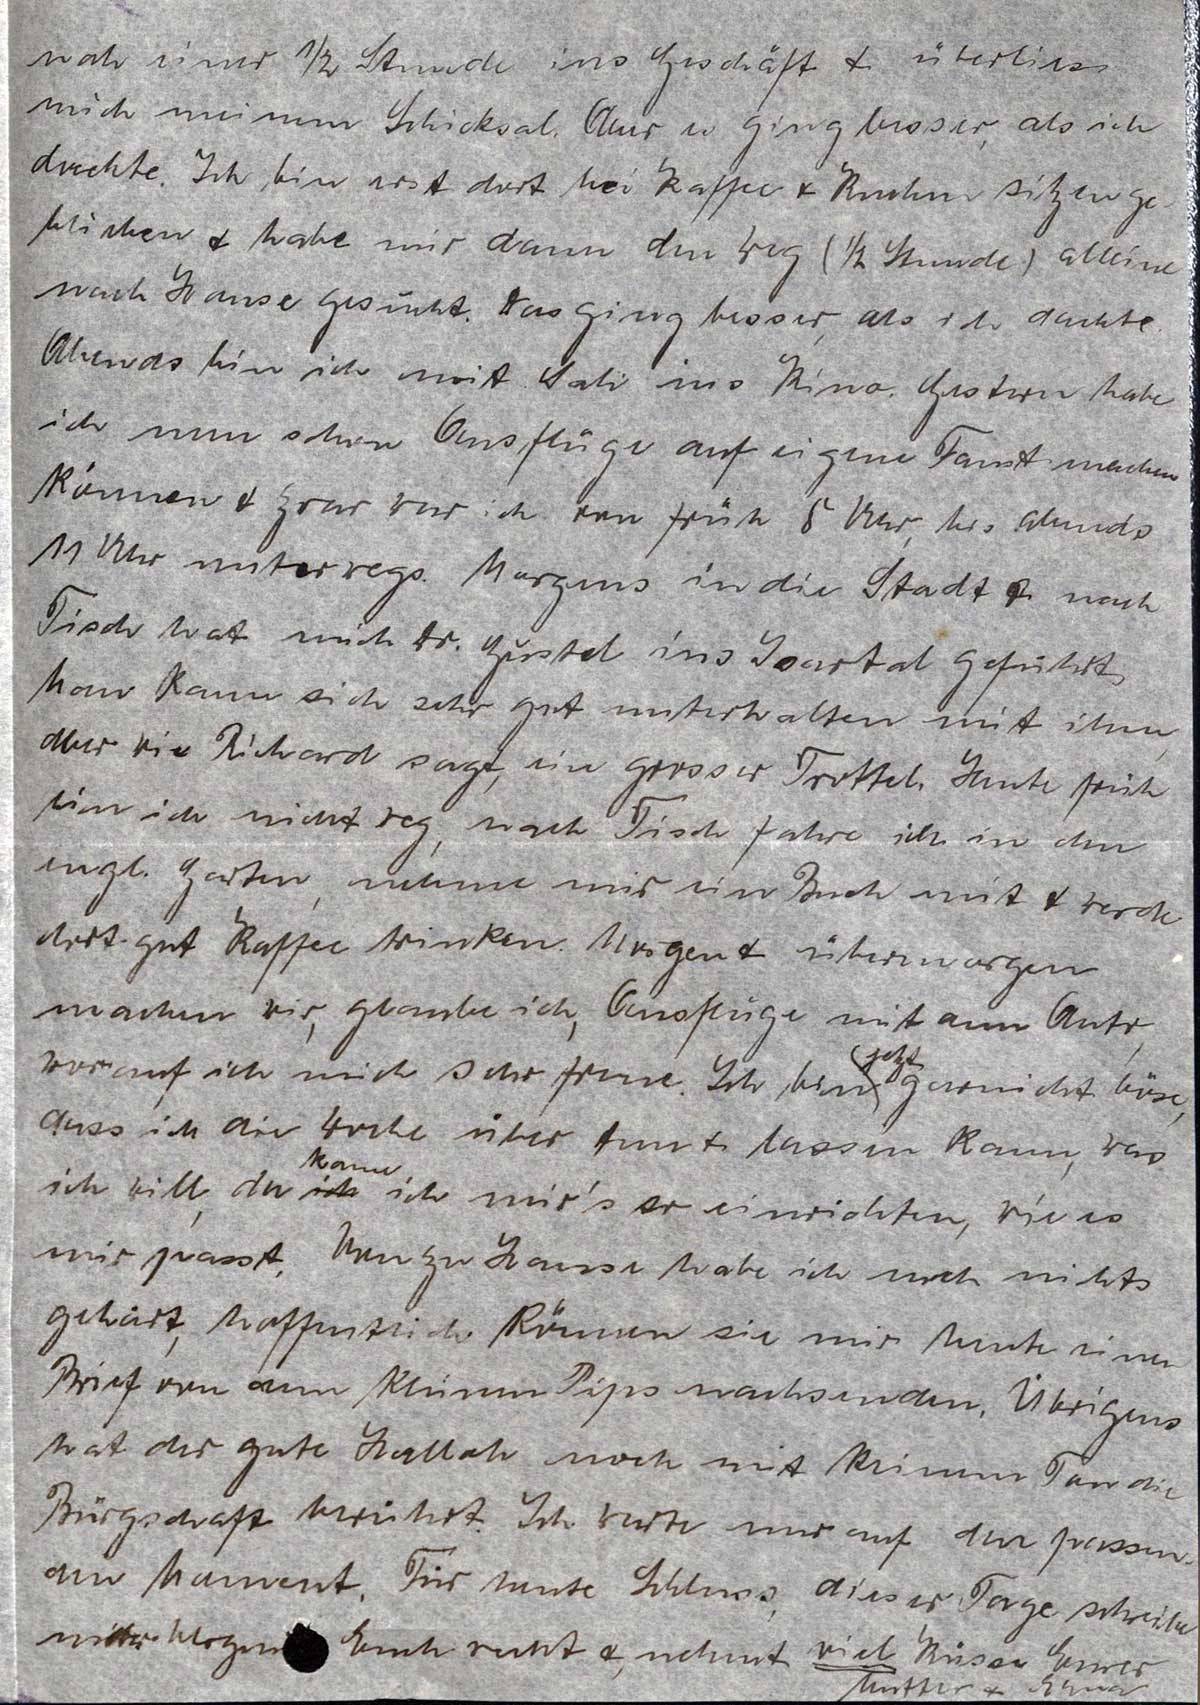 nach einer 1/2 Stunde ins Geschäft & überliess
mich meinem Schicksal. Aber es ging besser, als ich
dachte. Ich bin erst dort bei Kaffee & Kuchen sitzen ge-
blieben & habe mir dann den Weg (1/2 Stunde) alleine
nach Hause gesucht. Das ging besser, als ich dachte.
Abends bin ich mit Sali ins Kino. Gestern habe
ich nun schon Ausflüge auf eigene Faust machen
können & zwar war ich von früh 8 Uhr, bis abends
11 Uhr unterwegs. Morgens in die Stadt & nach
Tisch hat mich Dr. Gustel ins Isartal geführt.
Man kann sich sehr gut unterhalten mit ihm,
aber wie Richard sagt, ein grosser Trottel. Heute früh
bin ich nicht weg, nach Tisch fahre ich in den
engl. Garten, nehme mir ein Buch mit & werde
dort gut Kaffee trinken. Morgen & übermorgen
machen wir, glaube ich, Ausflüge mit dem Auto,
worauf ich mich sehr freue. Ich bin jetzt garnicht böse,
dass ich die Woche über tun & lassen kann, was
ich will, da kann ich mir's so einrichten, wie es
mir passt. Von zu Hause habe ich noch nichts
gehört, hoffentlich können sie mir heute einen
Brief von dem kleinen Pips nachsenden. Übrigens
hat der gute noch mit keinem Ton die
Bürgschaft berührt. Ich warte nur auf den passen-
den Moment. Für heute Schluss, dieser Tage schreibe
wieder. Euch recht & nehmt viel Küsse Eurer
Mutter &